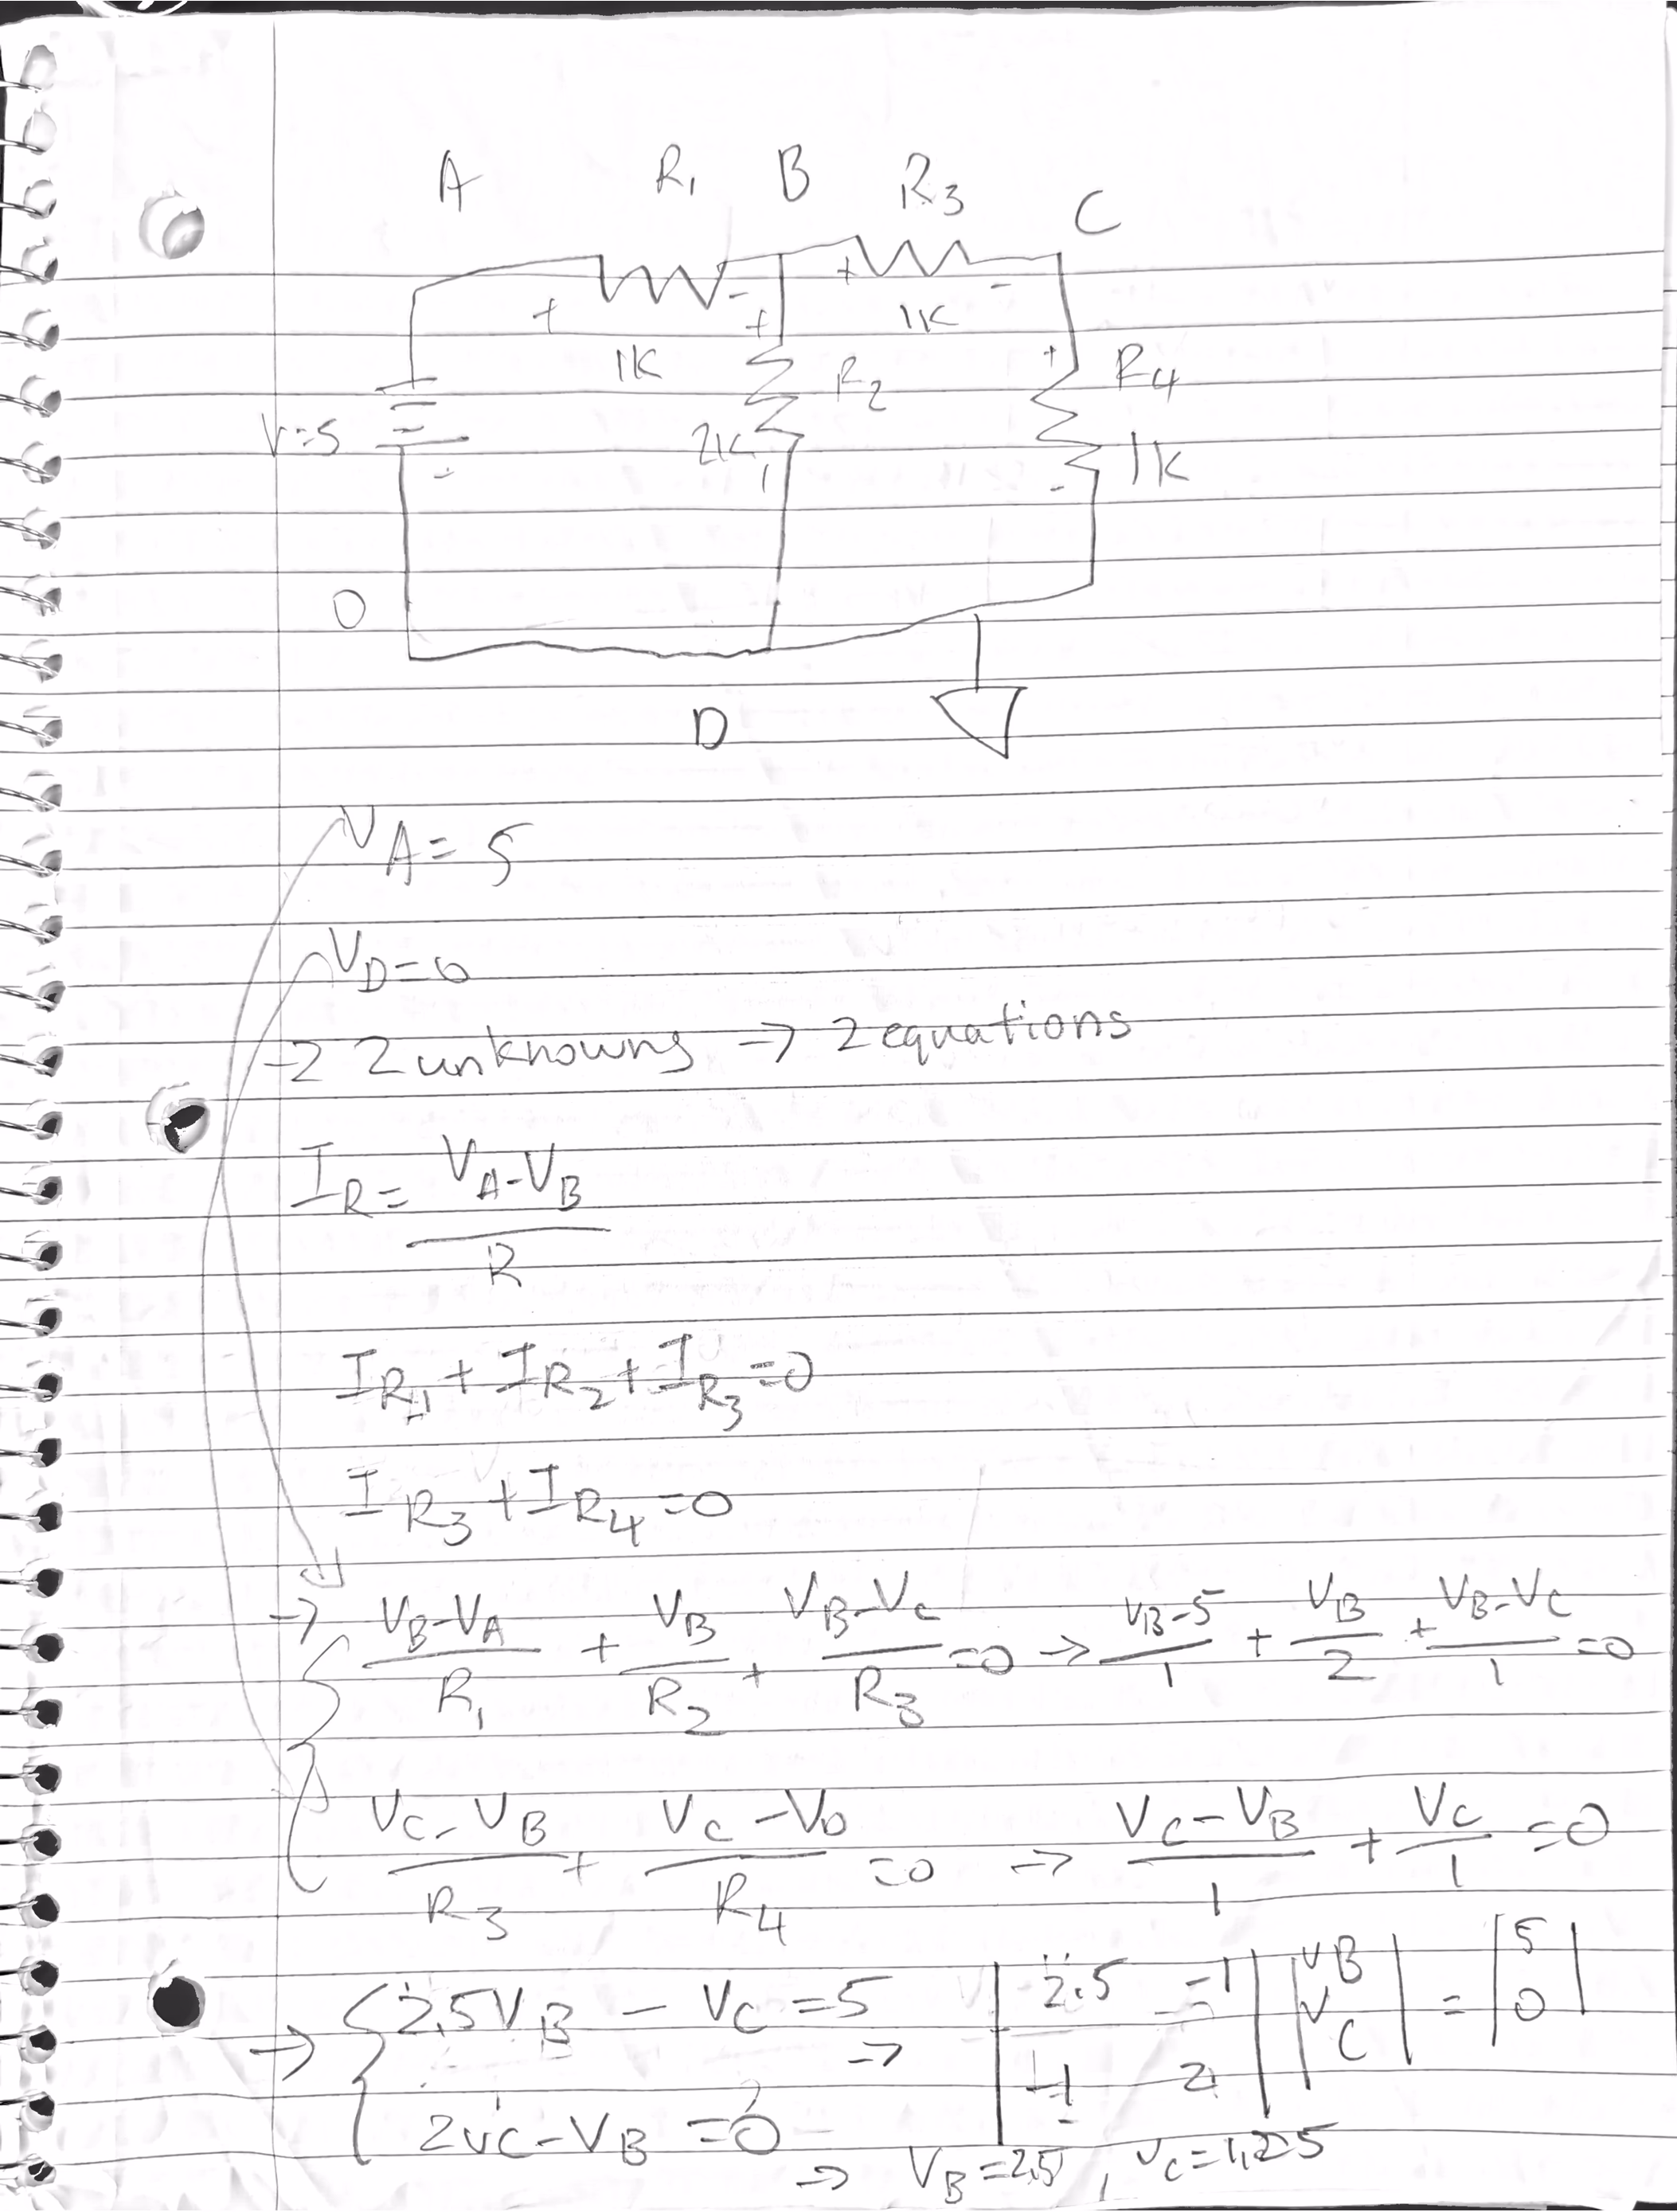 A R₁ B R₃ C
+ - + + - 
1K 1K
+ R₂ R₄
V=5 2K 1K
- -
O
D
V_A = 5
V_D = 0
→ 2 unknowns → 2 equations
I_R = (V_A - V_B) / R
I_R₁ + I_R₂ + I_R₃ = 0
I_R₃ + I_R₄ = 0
→ (V_B - V_A) / R₁ + V_B / R₂ + (V_B - V_C) / R₃ = 0 → (V_B - 5) / 1 + V_B / 2 + (V_B - V_C) / 1 = 0
(V_C - V_B) / R₃ + (V_C - V_D) / R₄ = 0 → (V_C - V_B) / 1 + V_C / 1 = 0
→ { 2.5V_B - V_C = 5 → | 2.5 -1 | | V_B | = | 5 |
2V_C - V_B = 0 | -1 2 | | V_C | | 0 |
→ V_B = 2.5, V_C = 1.25